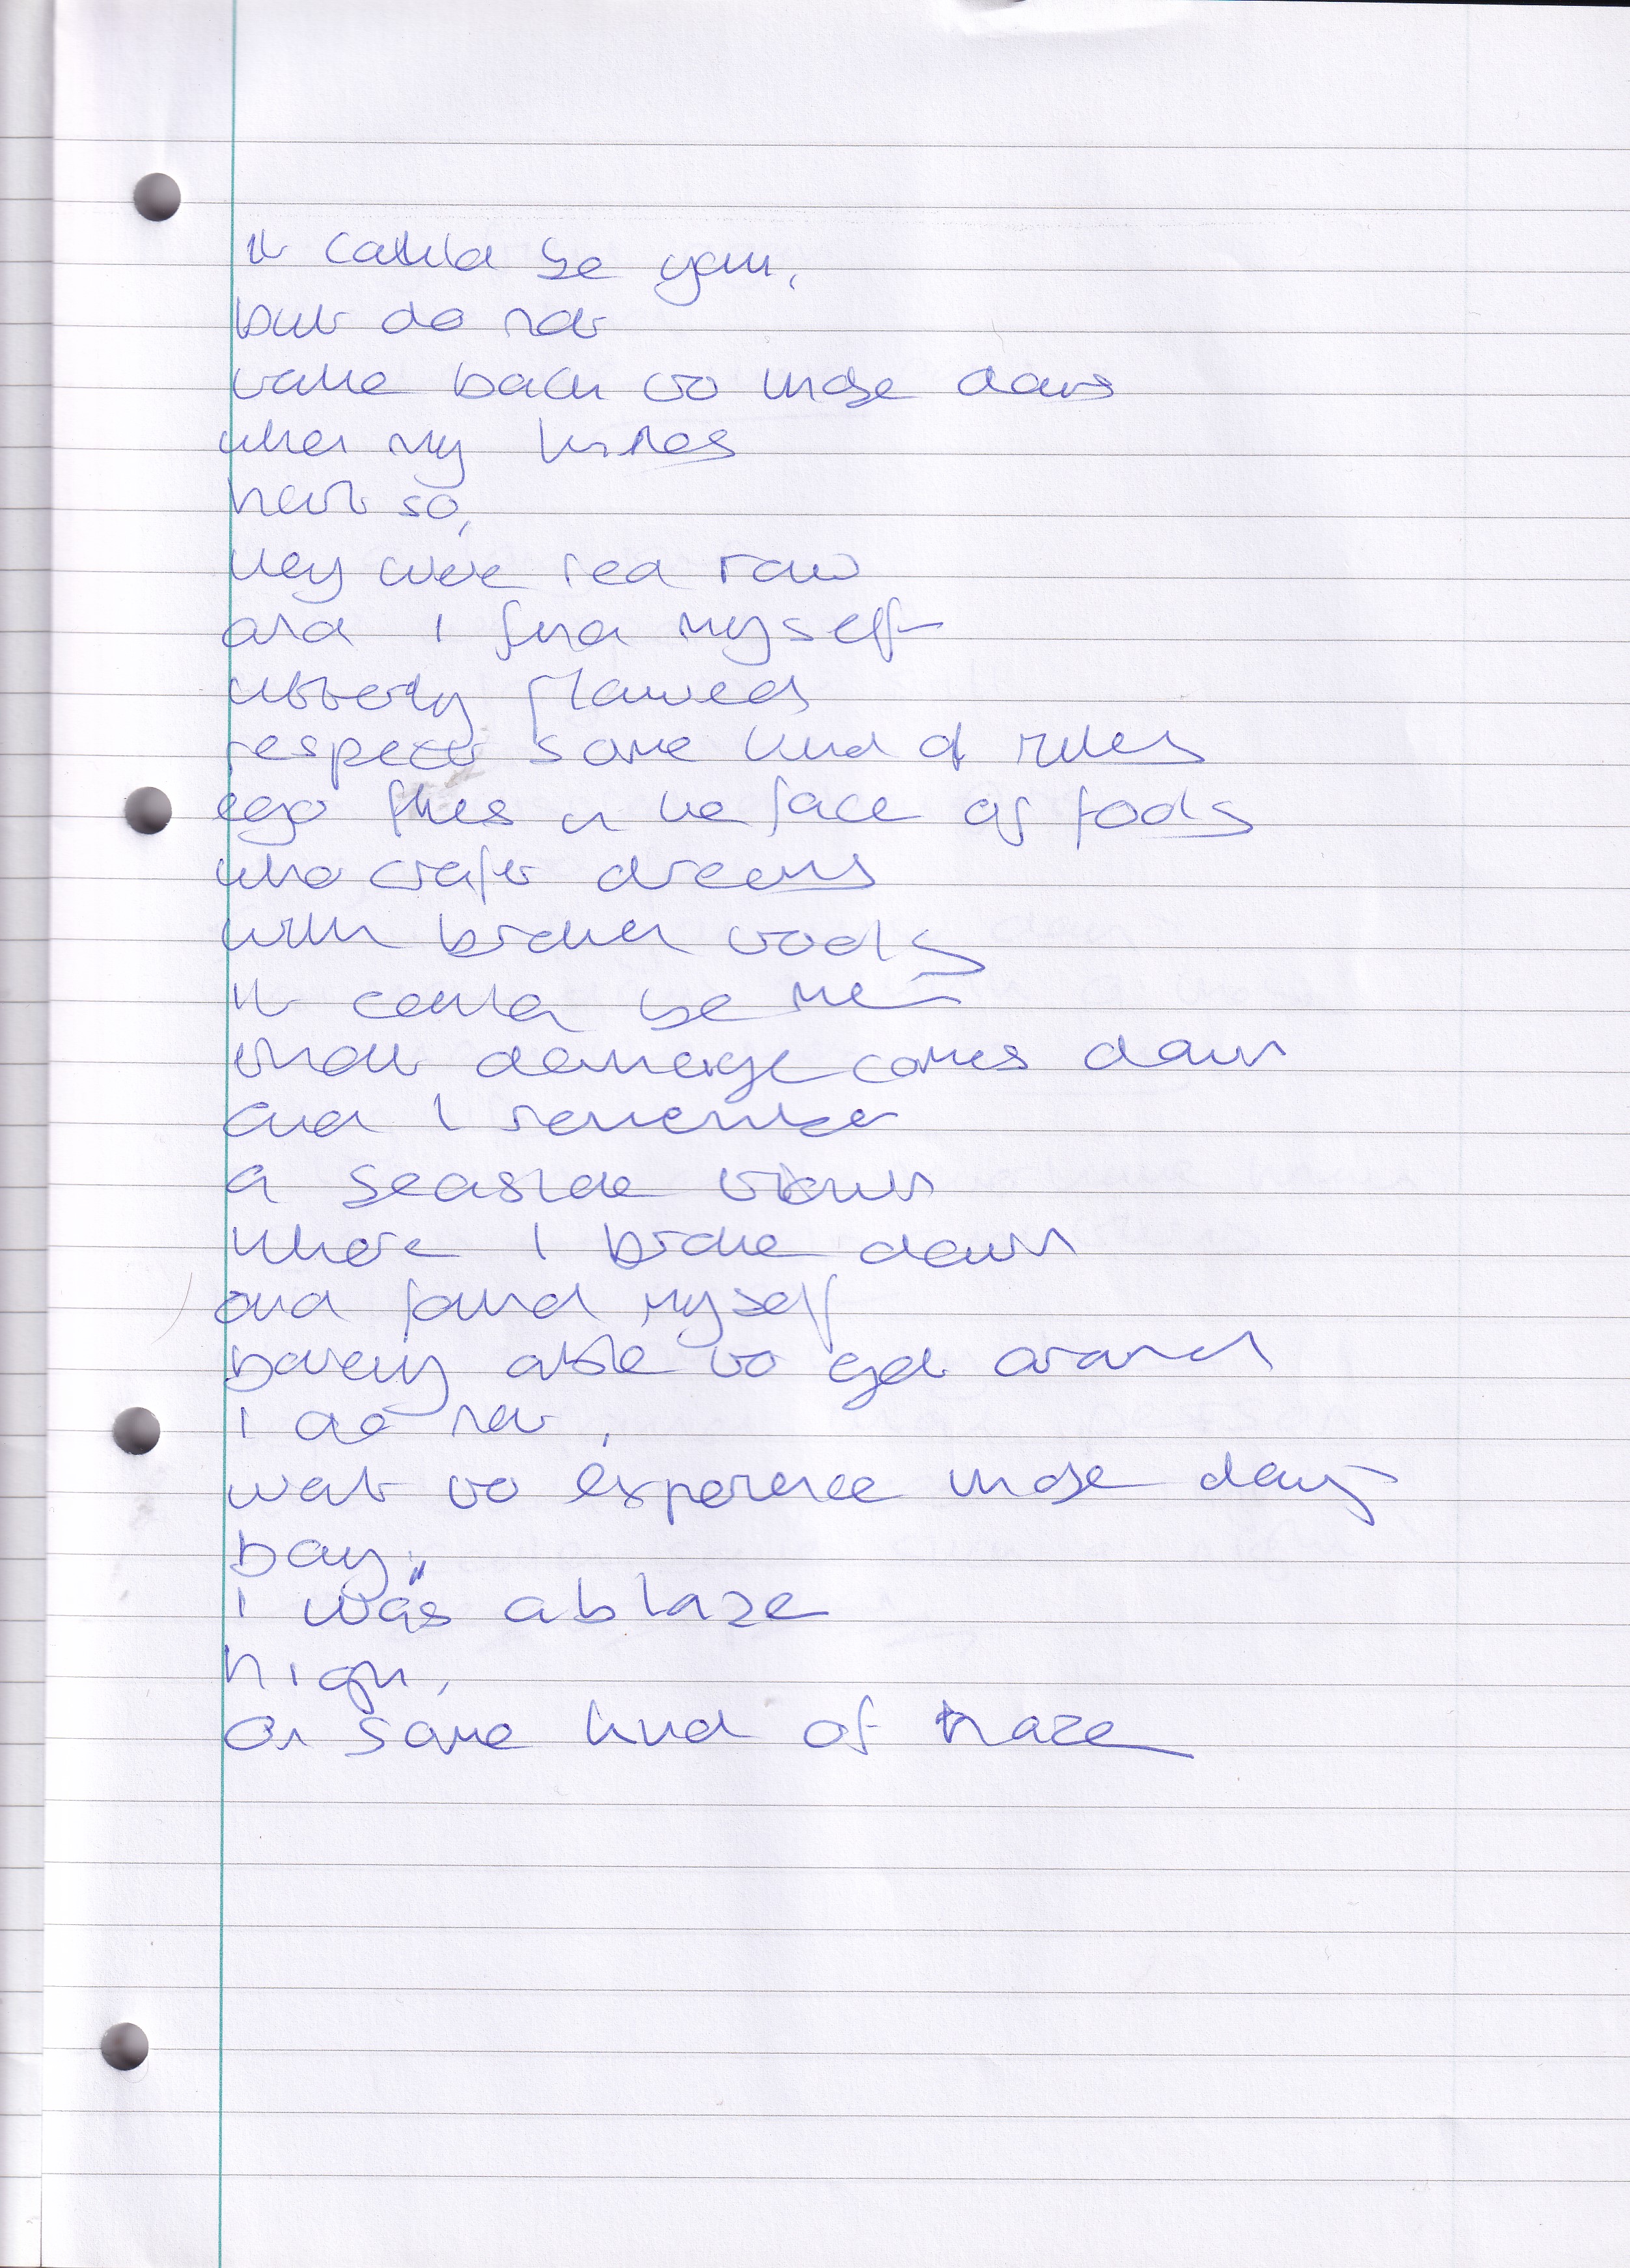 It could be you,
but do not
take back to those days
when my knees
hurt so,
they were red raw
and I find myself
utterly flawed
respect some kind of rules
ego flies in the face of fools
who craft dreams
with broken tools
It could be me
that damage comes down
and I remember
a seaside town
where I broke down
and found myself
barely able to get around
I do not,
want to experience those days
I was ablaze
high,
on some kind of haze